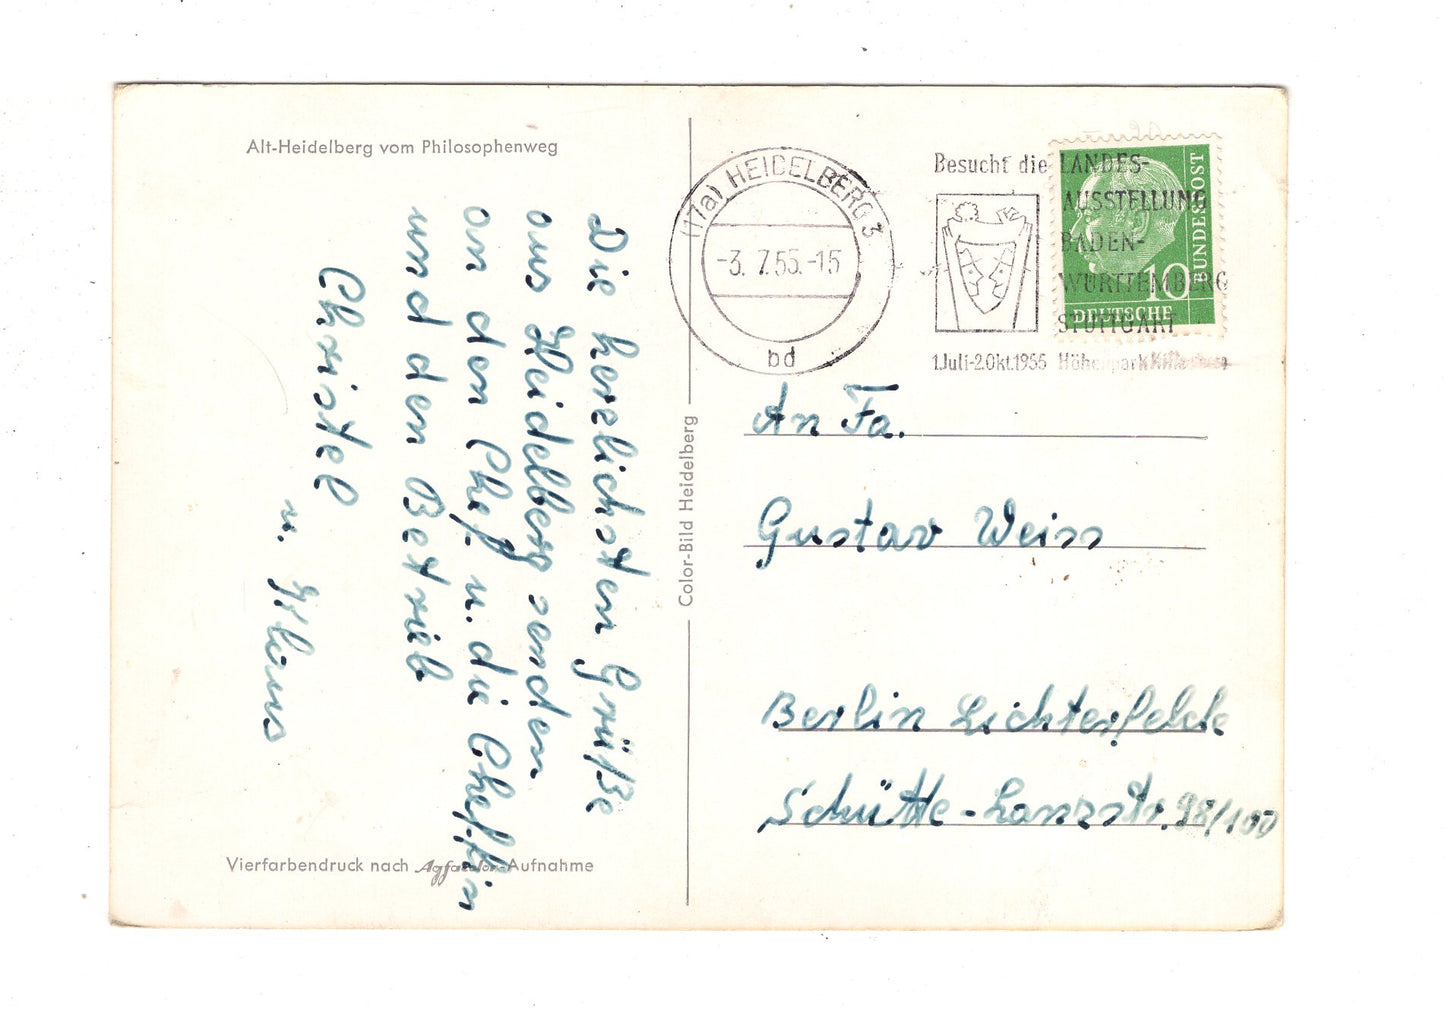 Alt-Heidelberg vom Philosophenweg
Die herzlichsten Grüße
aus Heidelberg senden
an den Chef u. die Cheffin
und den Betrieb
Christel
u. Klaus
Vierfarbendruck nach Agfacolor-Aufnahme
Color-Bild Heidelberg
(17a) HEIDELBERG 3
-3. 7. 55.-15
bd
Besucht die LANDES-
AUSSTELLUNG
BADEN-
WÜRTTEMBERG
STUTTGART
1.Juli-2.Okt.1955 Höhenpark Killesberg
10
DEUTSCHE
BUNDESPOST
An Fa.
Gustav Weiss
Berlin Lichterfelde
Schütte-Lanzstr. 98/100